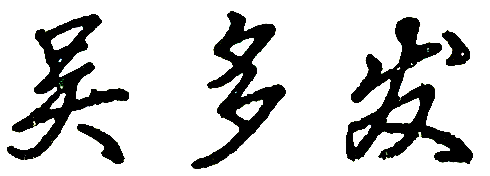 吴多发